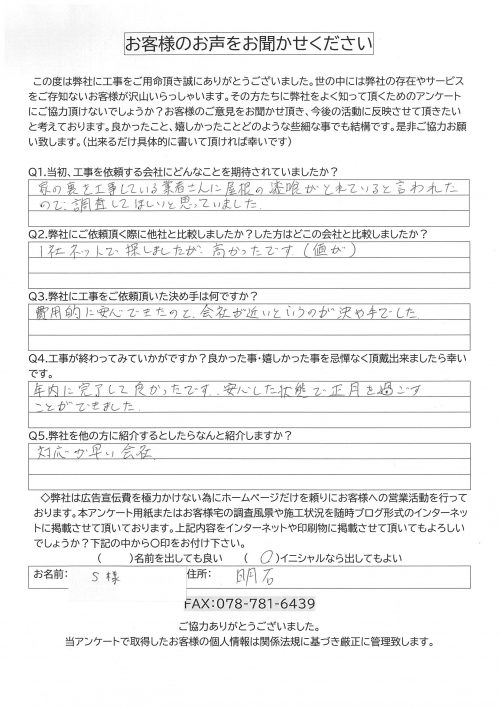 お客様のお声をお聞かせください
この度は弊社に工事をご用命頂き誠にありがとうございました。世の中には弊社の存在やサービス
をご存知ないお客様が沢山いらっしゃいます。その方たちに弊社をよく知って頂くためのアンケート
にご協力頂けないでしょうか？お客様のご意見をお聞かせ頂き、今後の活動に反映させて頂きたい
と考えております。良かったこと、嬉しかったことどのような些細な事でも結構です。是非ご協力お願
い致します。(出来るだけ具体的に書いて頂ければ幸いです)
Q1.当初、工事を依頼する会社にどんなことを期待されていましたか？
家の裏を工事している業者さんに屋根の漆喰がとれていると言われた
ので調査してほしいと思っていました.
Q2.弊社にご依頼頂く際に他社と比較しましたか？した方はどこの会社と比較しましたか？
1社ネットで探しましたが、高かったです(値が)
Q3.弊社に工事をご依頼頂いた決め手は何ですか？
費用的に安心できたのと、会社が近いというのが決め手でした.
Q4.工事が終わってみていかがですか？良かった事・嬉しかった事を忌憚なく頂戴出来ましたら幸い
です。
年内に完了して良かったです. 安心した状態で正月を過ごす
ことができました.
Q5.弊社を他の方に紹介するとしたらなんと紹介しますか？
対応が早い会社
◇弊社は広告宣伝費を極力かけない為にホームページだけを頼りにお客様への営業活動を行って
おります。本アンケート用紙またはお客様宅の調査風景や施工状況を随時ブログ形式のインターネッ
トに掲載させて頂いております。上記内容をインターネットや印刷物に掲載させて頂いてもよろしい
でしょうか？下記の中から〇印をお付け下さい。
(　　)名前を出しても良い　(　〇)イニシャルなら出してもよい
お名前: S 様　住所: 明石
FAX:078-781-6439
ご協力ありがとうございました。
当アンケートで取得したお客様の個人情報は関係法規に基づき厳正に管理致します。